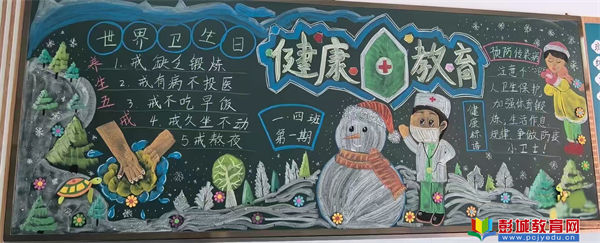 世界卫生日
养生五戒
1. 戒缺乏锻炼
2. 戒有病不投医
3 戒不吃早饭
4. 戒久坐不动
5 戒熬夜
健康教育
一.四班
第一期
健康标语
预防传染病
注意个
人卫生保护
加强体育锻
炼，生活作息
规律，争做防疫
小卫士！
彭城教育网
www.pcjyedu.cn